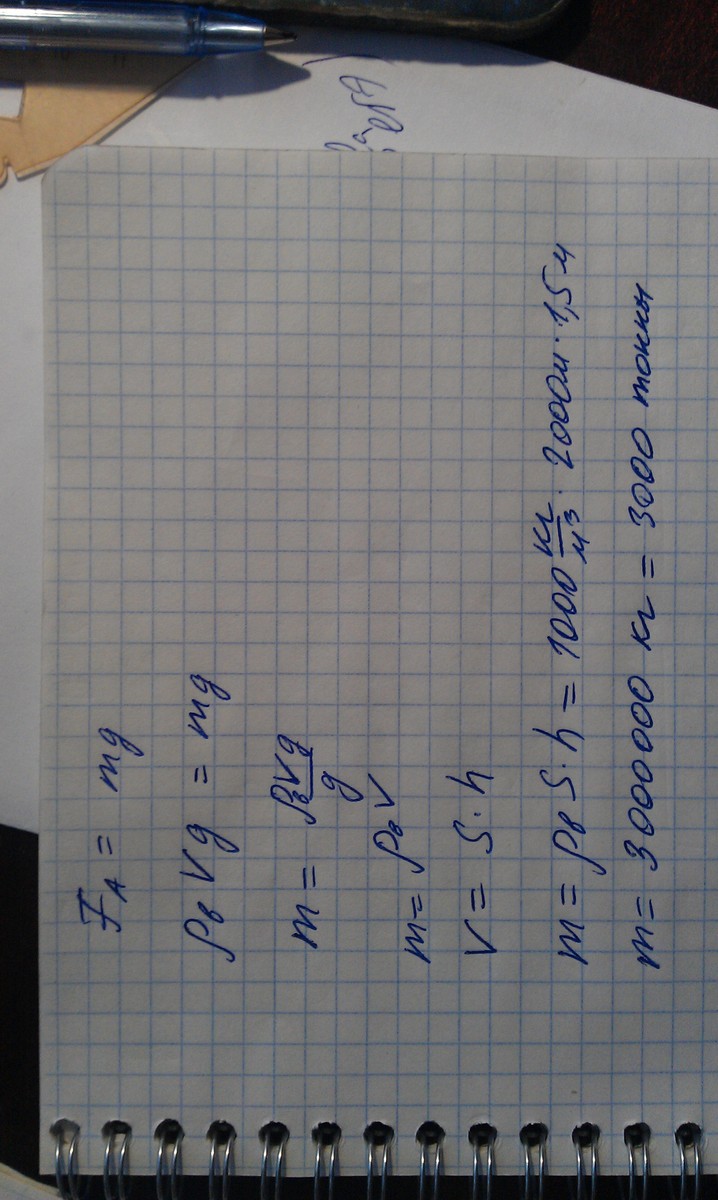 F_A = mg
ρ_в V g = mg
m = ρ_в V g / g
m = ρ_в V
V = S · h
m = ρ_в S · h = 1000 кг/м³ · 2000м · 1,5 м
m = 3000000 кг = 3000 тонны